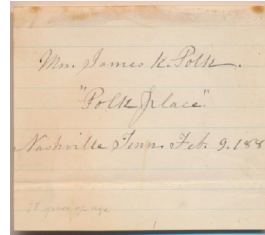 Mrs. James K. Polk.
"Polk Place"
Nashville Tenn. Feb. 9. 188
years of age